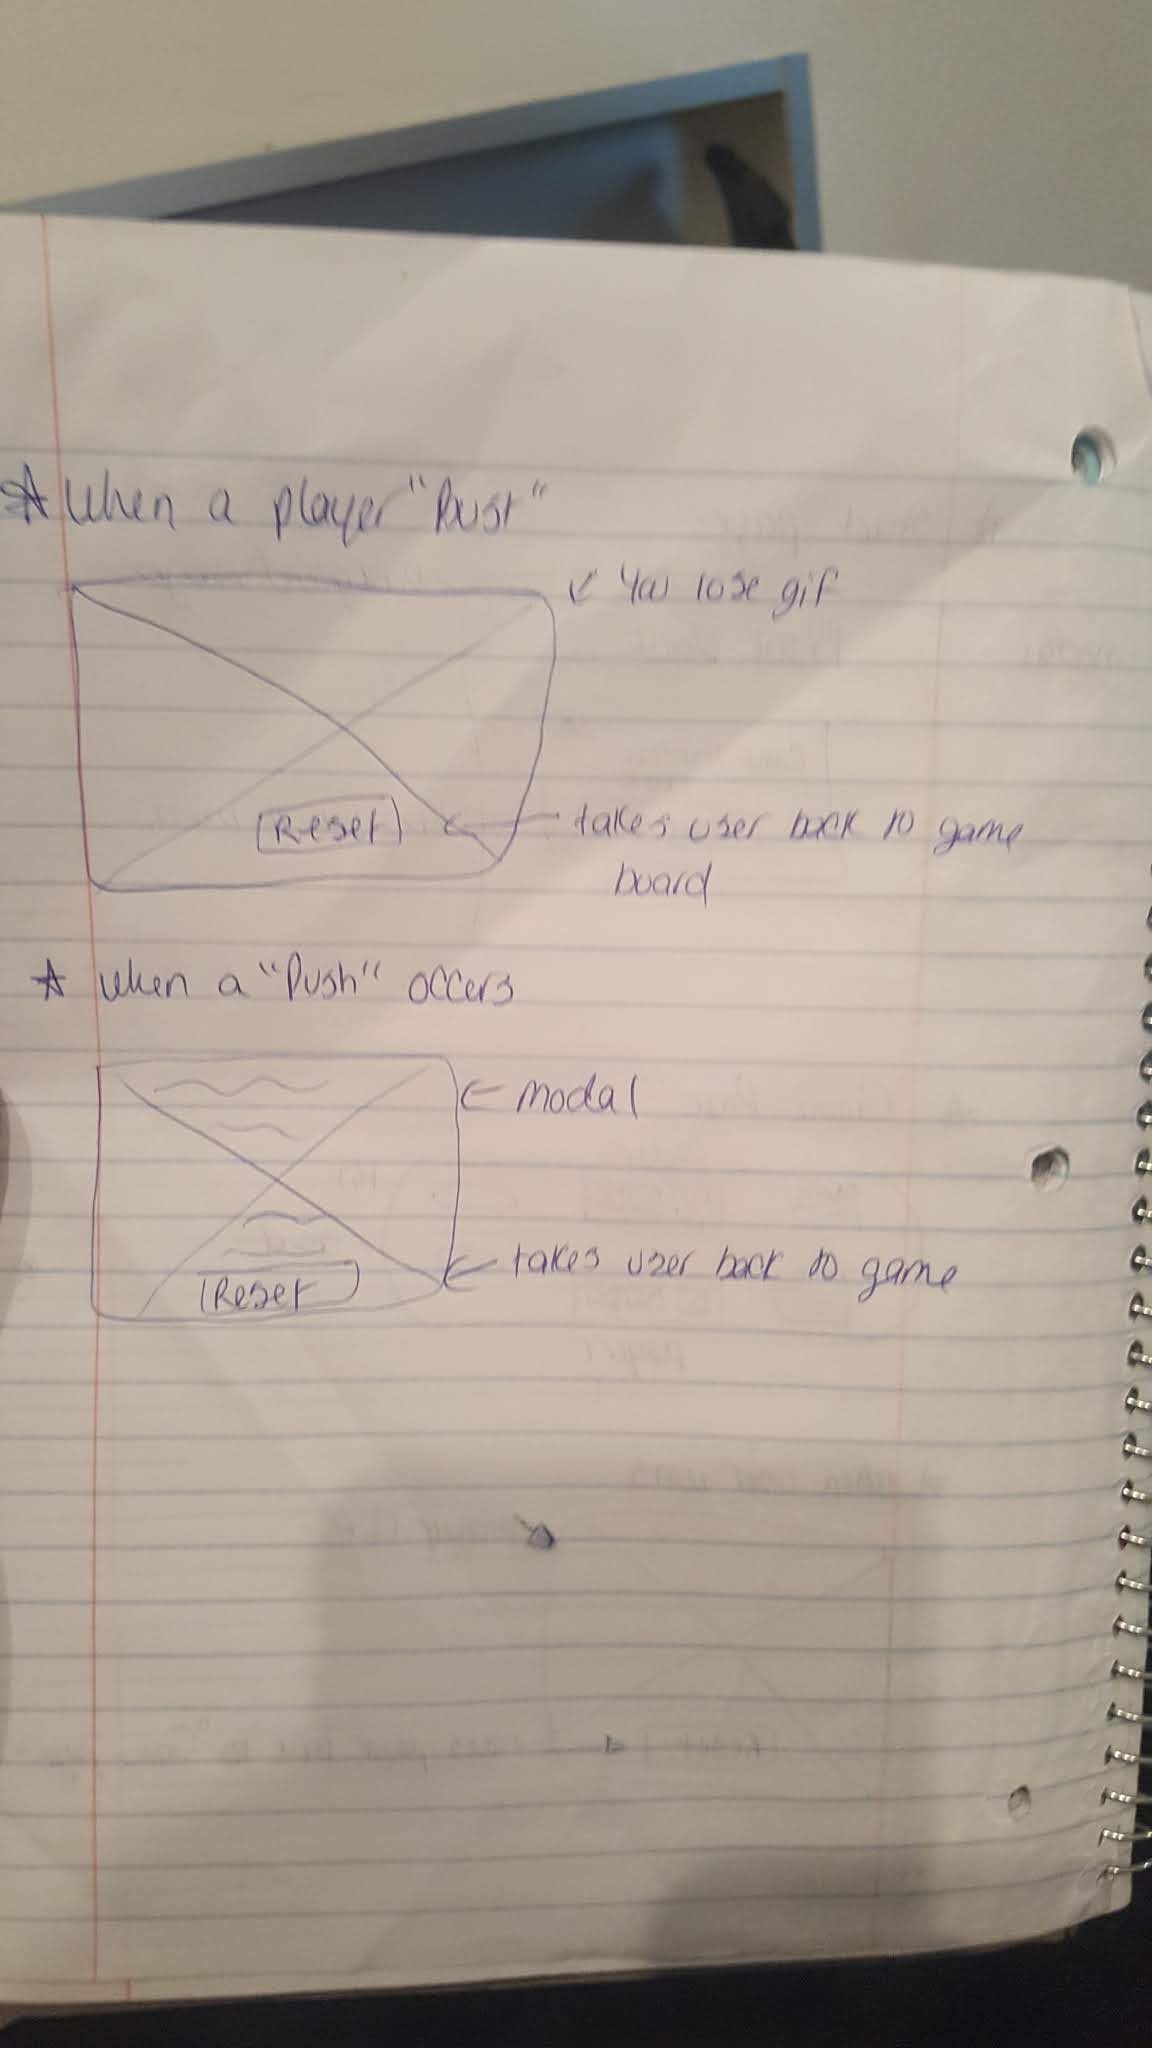 ☆ when a player "Bust"
← You lose gif
Reset
← takes user back to game
board
☆ when a "Push" occers
← modal
← takes user back to game
Reset